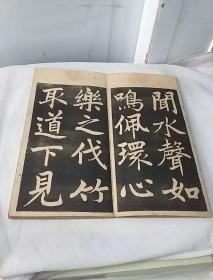 聞水聲如
鳴佩環心
樂之伐竹
取道下見